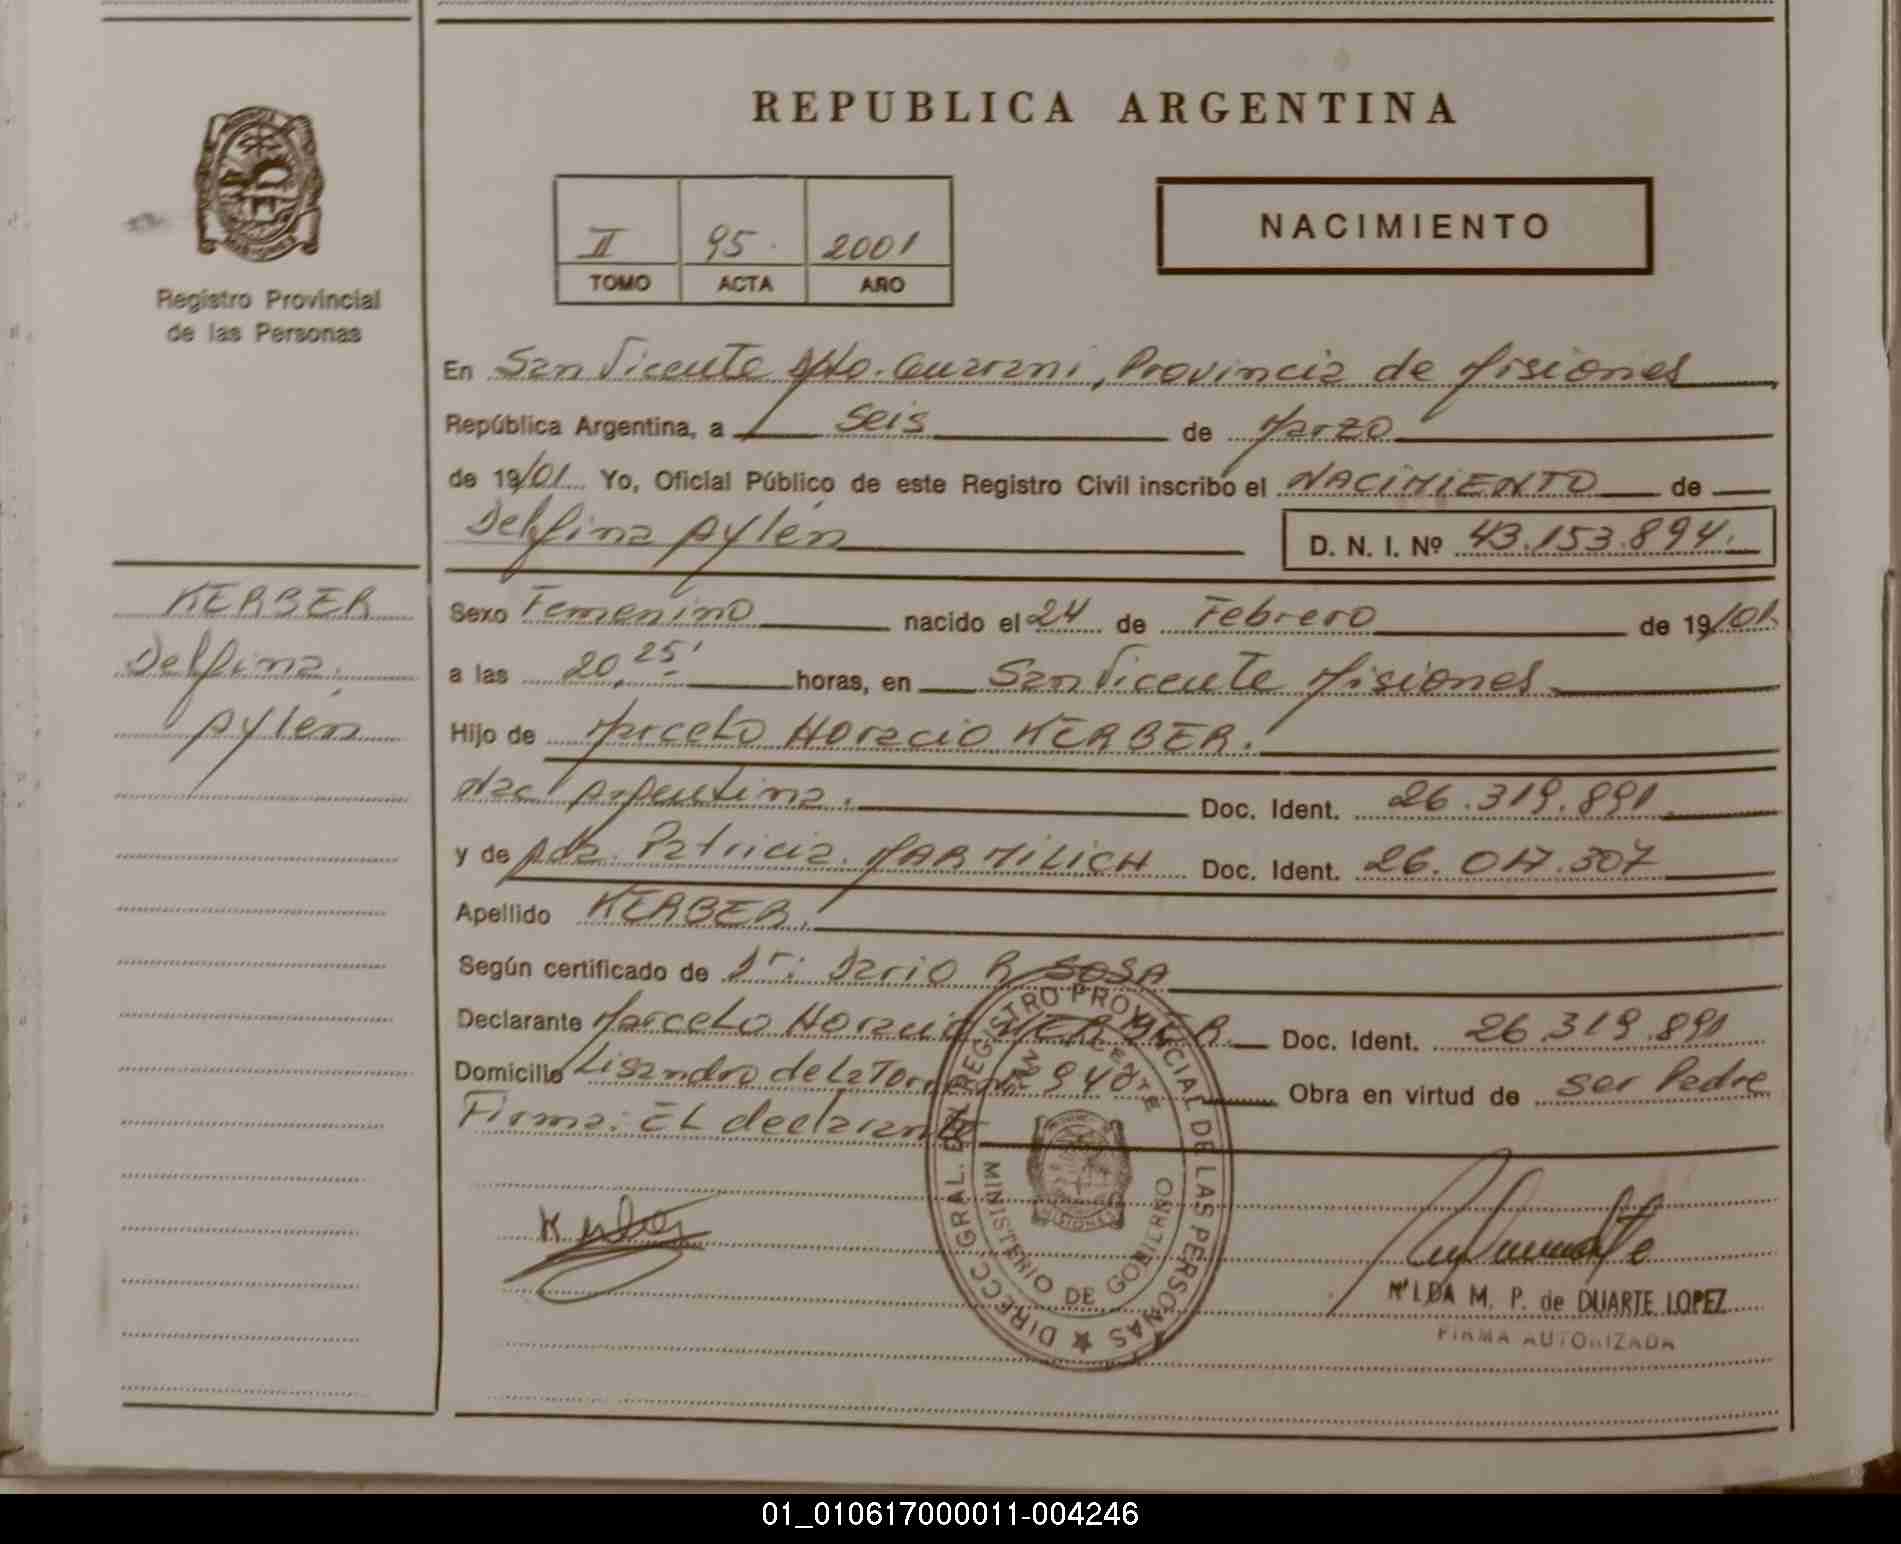 REPUBLICA ARGENTINA
NACIMIENTO
II 95 2001
TOMO ACTA AÑO
Registro Provincial
de las Personas
En San Vicente Dpto. Guarani, Provincia de Misiones
República Argentina, a Seis de Marzo
de 19/01 Yo, Oficial Público de este Registro Civil inscribo el NACIMIENTO de
Delfina Aylén D. N. I. Nº 43.153.894.
KERBER
Delfina
Aylén
Sexo Femenino nacido el 24 de Febrero de 19/01
a las 20,25' horas, en San Vicente Misiones
Hijo de Marcelo Horacio KERBER.
Nac Argentina. Doc. Ident. 26.319.891
y de Patricia MARMILICH Doc. Ident. 26.017.307
Apellido KERBER.
Según certificado de Dr. Dario R SOSA
Declarante Marcelo Horacio KERBER. Doc. Ident. 26.319.891
Domicilio Lisandro de La Torre Obra en virtud de ser Padre
Firma: EL declarante
DIRECC. GRAL. DEL REGISTRO PROVINCIAL DE LAS PERSONAS
MINISTERIO DE GOBIERNO
MISIONES
Kerber
M. P. de DUARTE LOPEZ
FIRMA AUTORIZADA
01_010617000011-004246